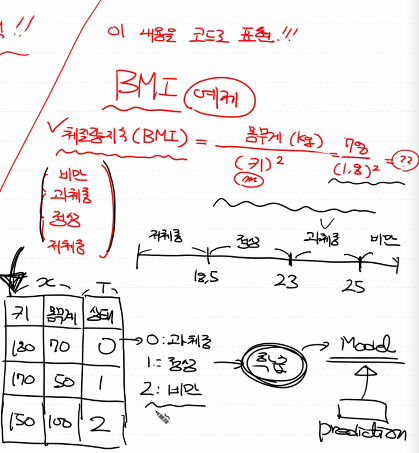 !!
이 내용을 코드로 표현.!!!
BMI 예제
체질량지수(BMI) = 몸무게(kg) / (키)² = 78 / (1.8)² = ??
(m)
비만
과체중
정상
저체중
저체중 정상 과체중 비만
18.5 23 25
x T
키 몸무게 상태
180 70 0
170 50 1
150 100 2
0:과체중
1:정상
2:비만
학습
Model
prediction